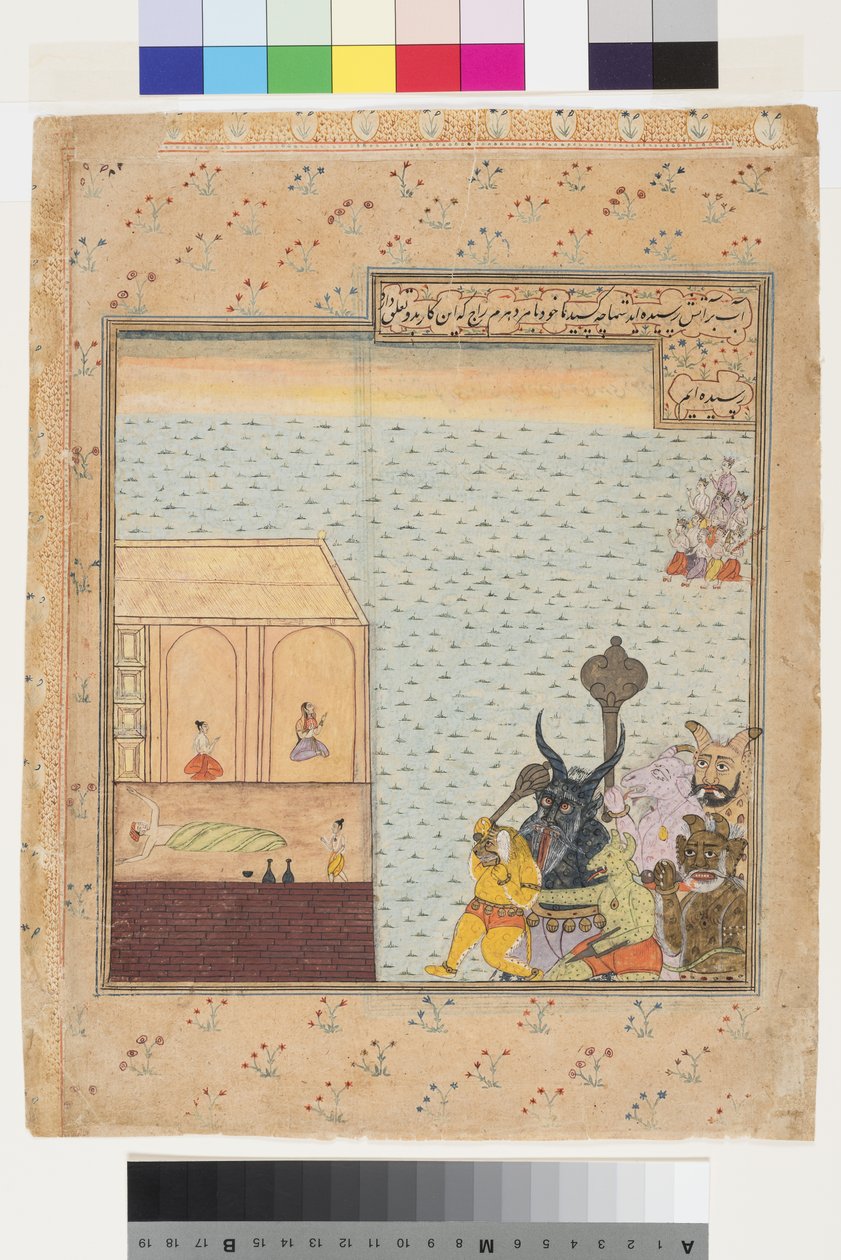 آب برآتش رسیده اید شما چه کسید ما خود با مر دهرم راج که این کار بدو تعلق دارد
رسیده ایم
19 18 17 B 15 14 13 12 11 10 9 8 M 6 5 4 3 2 1 A